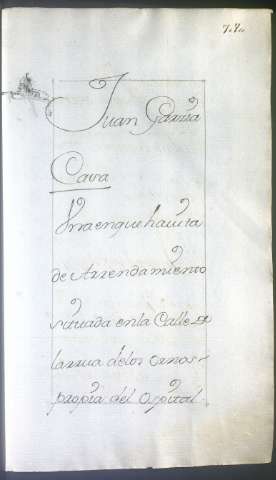 7.8.
Juan Garzia
Cava
Una en que havita
de Arrendamiento
situada en la Calle de
la rrua de los ornos
propia del Ospital.